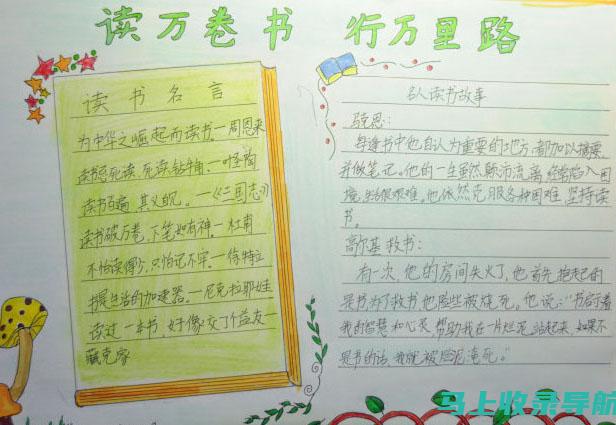 读万卷书 行万里路
读书名言
为中华之崛起而读书。—周恩来
读书忌死读,死读钻牛角。—叶圣陶
读书百遍,其义自见。—《三国志》
读书破万卷,下笔如有神。—杜甫
不怕读得少,只怕记不牢。—徐特立
书是生活的加速器。—尼克拉耶娃
读过一本书,好像交了个益友—
臧克家
名人读书故事
马克思:
每逢书中他自认为重要的地方,都加以摘录
并做笔记。他的一生虽然颠沛流离,经常陷入困
境,生活很艰难,也依然克服各种困难,坚持读
书。
高尔基救书:
有一次,他的房间失火了,他首先抱起的
是书为了救书他险些被烧死。他说:"书启示着
我的智慧和心灵,帮助我在一片烂泥站起来,如果不
是书的话,我就被烂泥淹死。"
马上收录导航